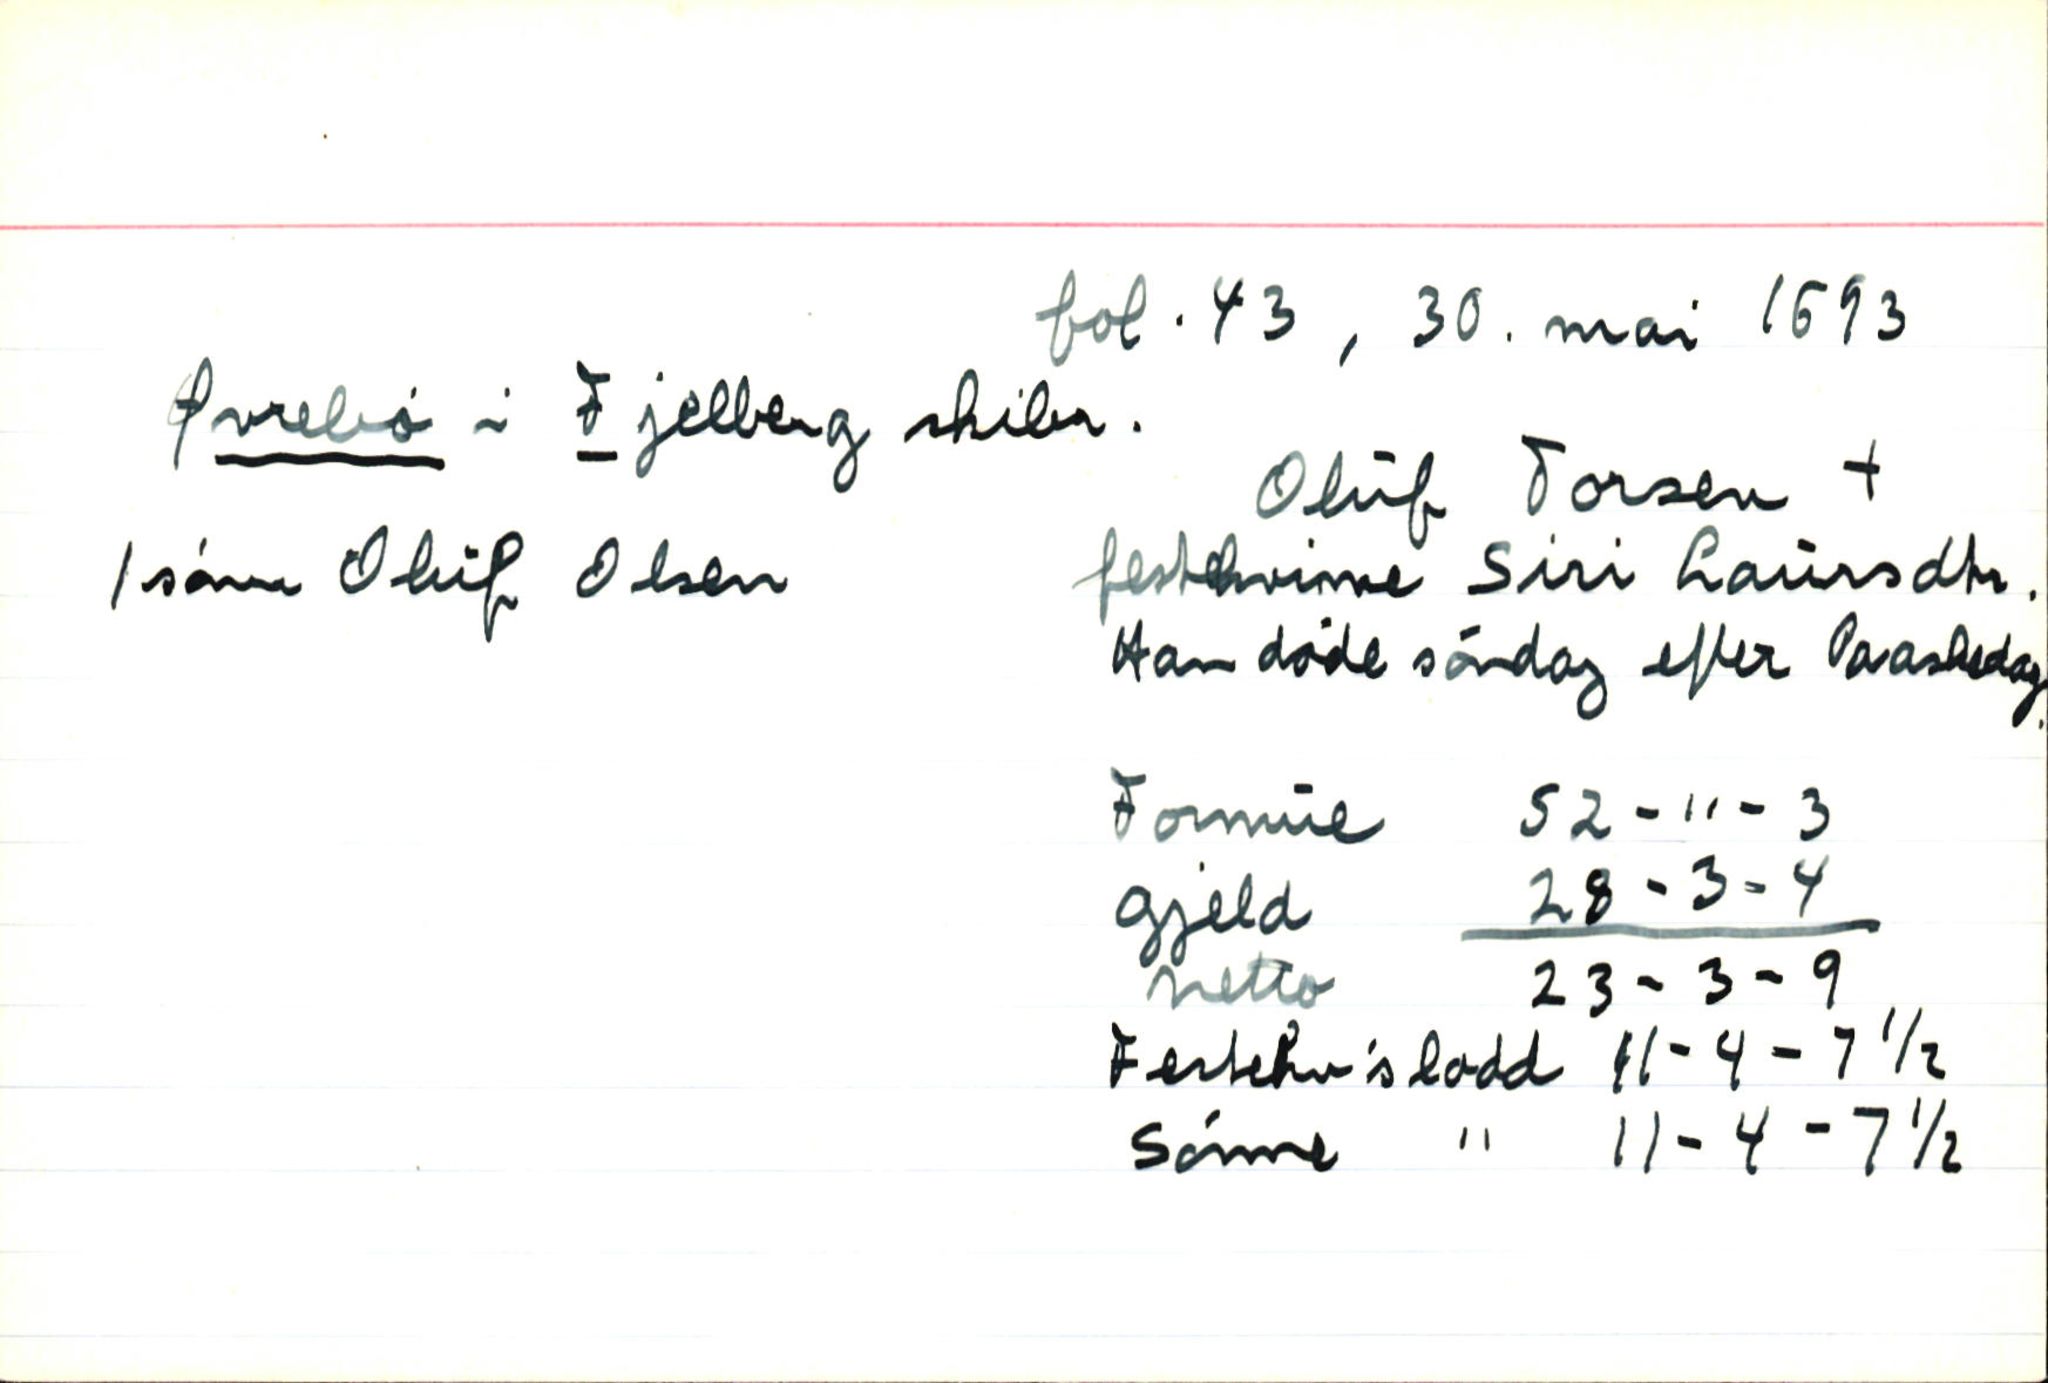 fol. 43, 30. mai 1693
Øvrebø i Fjelberg skibr.
Olūf Torsen +
1 sønn Olūf Olsen
festekvinne Siri Laūrsdtr.
Han døde søndag efter Paaskedag.
Formūe 52 - " - 3
Gjeld 28 - 3 - 4
Netto 23 - 3 - 9
Festekv's lodd 11 - 4 - 7 1/2
Sønne " 11 - 4 - 7 1/2